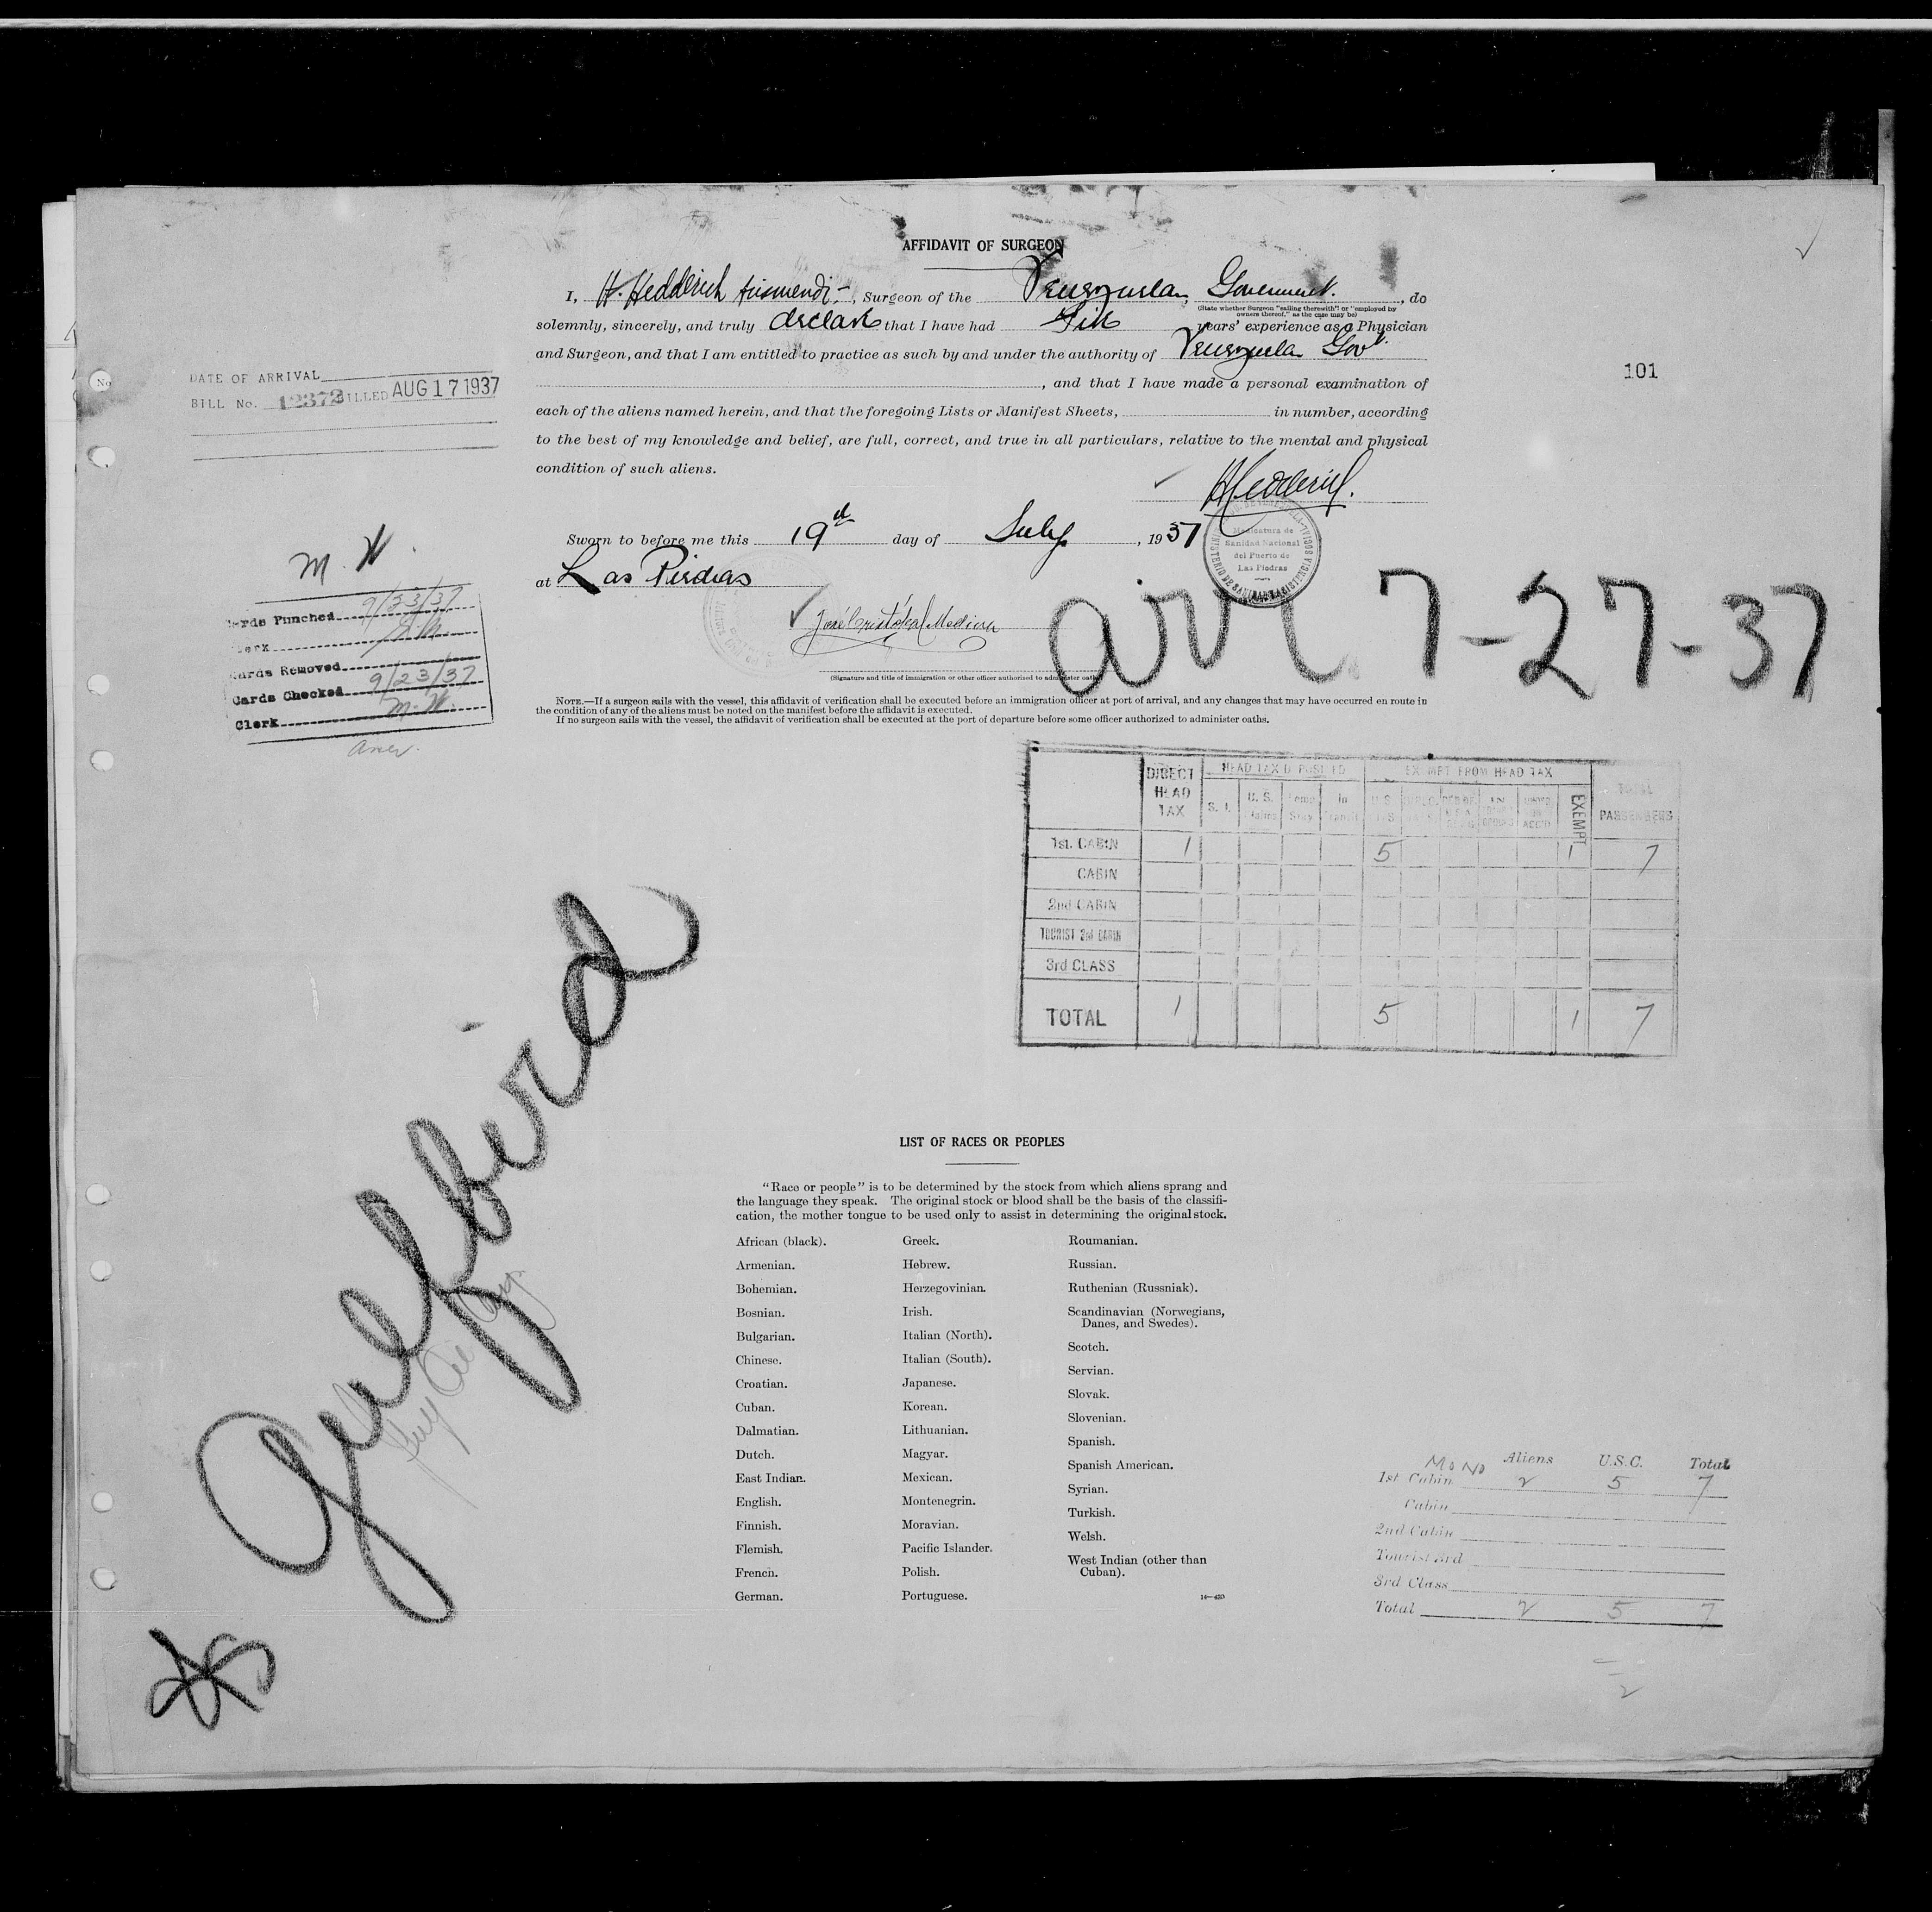 AFFIDAVIT OF SURGEON
I, H. Hedderich , Surgeon of the Venezuelan Government. , do
(State whether Surgeon "sailing therewith" or "employed by
owners thereof," as the case may be)
solemnly, sincerely, and truly declare that I have had years' experience as a Physician
and Surgeon, and that I am entitled to practice as such by and under the authority of Venezuelan Govt.
, and that I have made a personal examination of
each of the aliens named herein, and that the foregoing Lists or Manifest Sheets, in number, according
to the best of my knowledge and belief, are full, correct, and true in all particulars, relative to the mental and physical
condition of such aliens.
Sworn to before me this 19th day of July , 1937
at Las Piedras
José Cristóbal Medina
(Signature and title of immigration or other officer authorized to administer oaths)
NOTE.—If a surgeon sails with the vessel, this affidavit of verification shall be executed before an immigration officer at port of arrival, and any changes that may have occurred en route in
the condition of any of the aliens must be noted on the manifest before the affidavit is executed.
If no surgeon sails with the vessel, the affidavit of verification shall be executed at the port of departure before some officer authorized to administer oaths.
Medicatura de
Sanidad Nacional
del Puerto de
Las Piedras
arr 7-27-37
101
No
DATE OF ARRIVAL
BILL No. 12372 BILLED AUG 17 1937
M. W.
Cards Punched 9/23/37
Clerk
Cards Removed
Cards Checked 9/23/37
Clerk M. W.
DIRECT HEAD TAX
HEAD TAX DEPOSITED
EXEMPT FROM HEAD TAX
TOTAL PASSENGERS
S. I.
U. S.
Temp Stay
In Transit
EXEMPT
1st. CABIN 1 5 1 7
CABIN
2nd CABIN
TOURIST 2nd CABIN
3rd CLASS
TOTAL 1 5 1 7
Gulfbird
LIST OF RACES OR PEOPLES
"Race or people" is to be determined by the stock from which aliens sprang and
the language they speak. The original stock or blood shall be the basis of the classifi-
cation, the mother tongue to be used only to assist in determining the original stock.
African (black).
Armenian.
Bohemian.
Bosnian.
Bulgarian.
Chinese.
Croatian.
Cuban.
Dalmatian.
Dutch.
East Indian.
English.
Finnish.
Flemish.
French.
German.
Greek.
Hebrew.
Herzegovinian.
Irish.
Italian (North).
Italian (South).
Japanese.
Korean.
Lithuanian.
Magyar.
Mexican.
Montenegrin.
Moravian.
Pacific Islander.
Polish.
Portuguese.
Roumanian.
Russian.
Ruthenian (Russniak).
Scandinavian (Norwegians,
Danes, and Swedes).
Scotch.
Servian.
Slovak.
Slovenian.
Spanish.
Spanish American.
Syrian.
Turkish.
Welsh.
West Indian (other than
Cuban).
Aliens U.S.C. Total
1st Cabin 2 5 7
Cabin
2nd Cabin
Tourist 3rd
3rd Class
Total 2 5 7
2